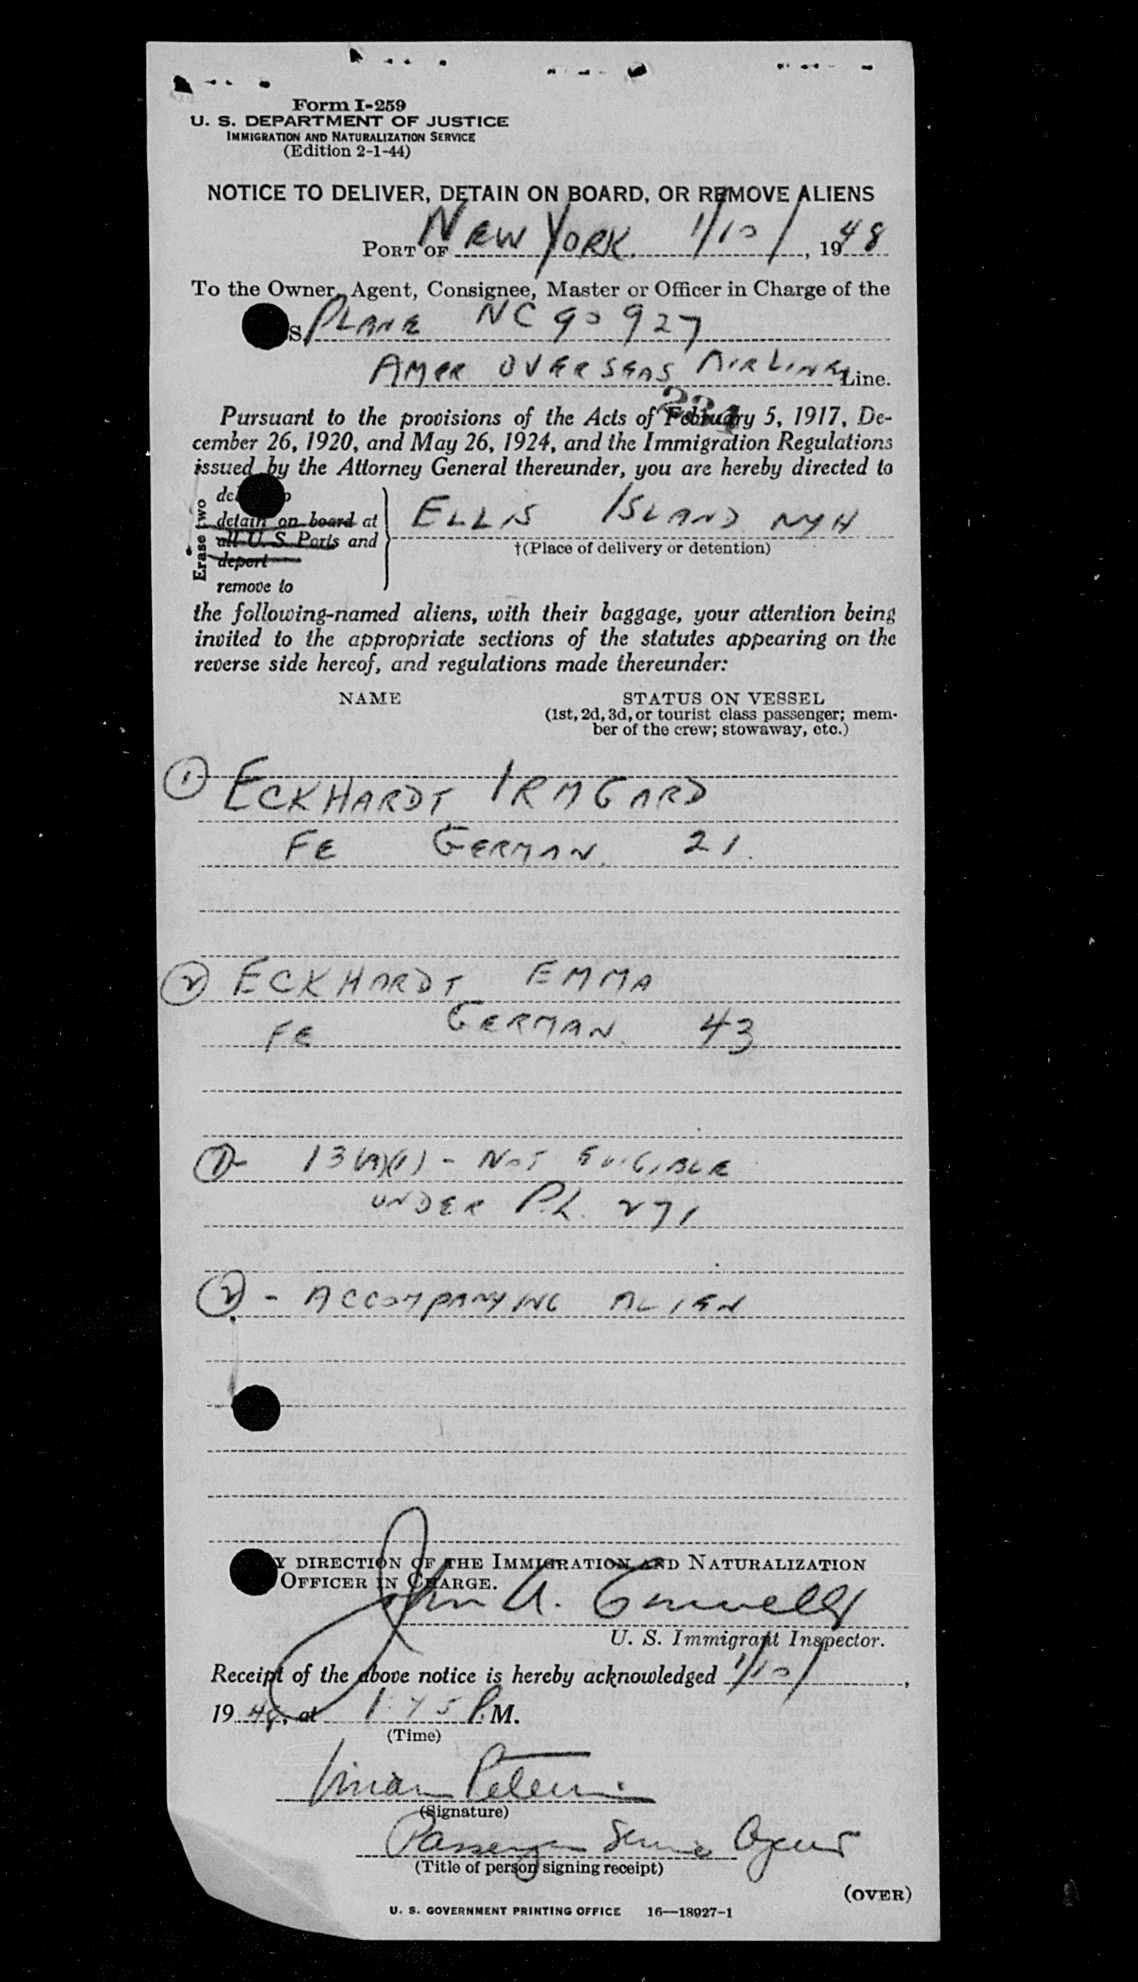 Form I-259
U. S. DEPARTMENT OF JUSTICE
IMMIGRATION AND NATURALIZATION SERVICE
(Edition 2-1-44)
NOTICE TO DELIVER, DETAIN ON BOARD, OR REMOVE ALIENS
PORT OF NEW YORK. 1/10/, 1948
To the Owner, Agent, Consignee, Master or Officer in Charge of the
S PLANE NC 90927
AMER OVERSEAS AIRLINE Line.
234
Pursuant to the provisions of the Acts of February 5, 1917, De-
cember 26, 1920, and May 26, 1924, and the Immigration Regulations
issued by the Attorney General thereunder, you are hereby directed to
Erase two
detain on board at ELLIS ISLAND NYH
all U. S. Ports and †(Place of delivery or detention)
deport
remove to
the following-named aliens, with their baggage, your attention being
invited to the appropriate sections of the statutes appearing on the
reverse side hereof, and regulations made thereunder:
NAME STATUS ON VESSEL
(1st, 2d, 3d, or tourist class passenger; mem-
ber of the crew; stowaway, etc.)
1 ECKHARDT IRMGARD
FE GERMAN. 21.
2 ECKHARDT EMMA
FE GERMAN. 43
1- 13(A)(1) - NOT ELIGIBLE
UNDER P.L. 271
2 - ACCOMPANYING ALIEN
Y DIRECTION OF THE IMMIGRATION AND NATURALIZATION
OFFICER IN CHARGE.
John A.
U. S. Immigrant Inspector.
Receipt of the above notice is hereby acknowledged 1/10/,
1948, at P.M.
(Time)
Vivian
(Signature)
Passenger Service Agent
(Title of person signing receipt)
(OVER)
U. S. GOVERNMENT PRINTING OFFICE 16—18927-1